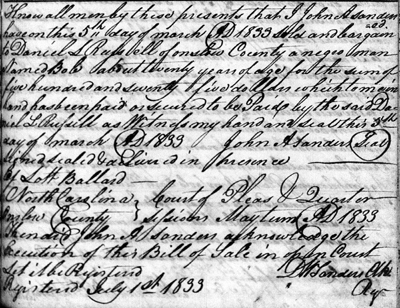 Know all men by these presents that I John A Sanders
have on this 5th day of march AD 1833 sold and bargained
to Daniel L Russell of Onslow County a negro man
named Bob about twenty years of age for the sum of
five hundred and seventy five dollars which to me in
hand has been paid or secured to be paid by the said Dan
iel L Russell as Witness my hand and seal this 5th
day of march AD 1833 John A Sanders Seal
signed sealed & delivered in presence
of Lott Ballard
North Carolina Court of Pleas & Quarter
Onslow County Sessions May term AD 1833
Then said John A Sanders acknowledge the
Execution of this Bill of Sale in open Court
Let it be Registered
Registered July 1st 1833